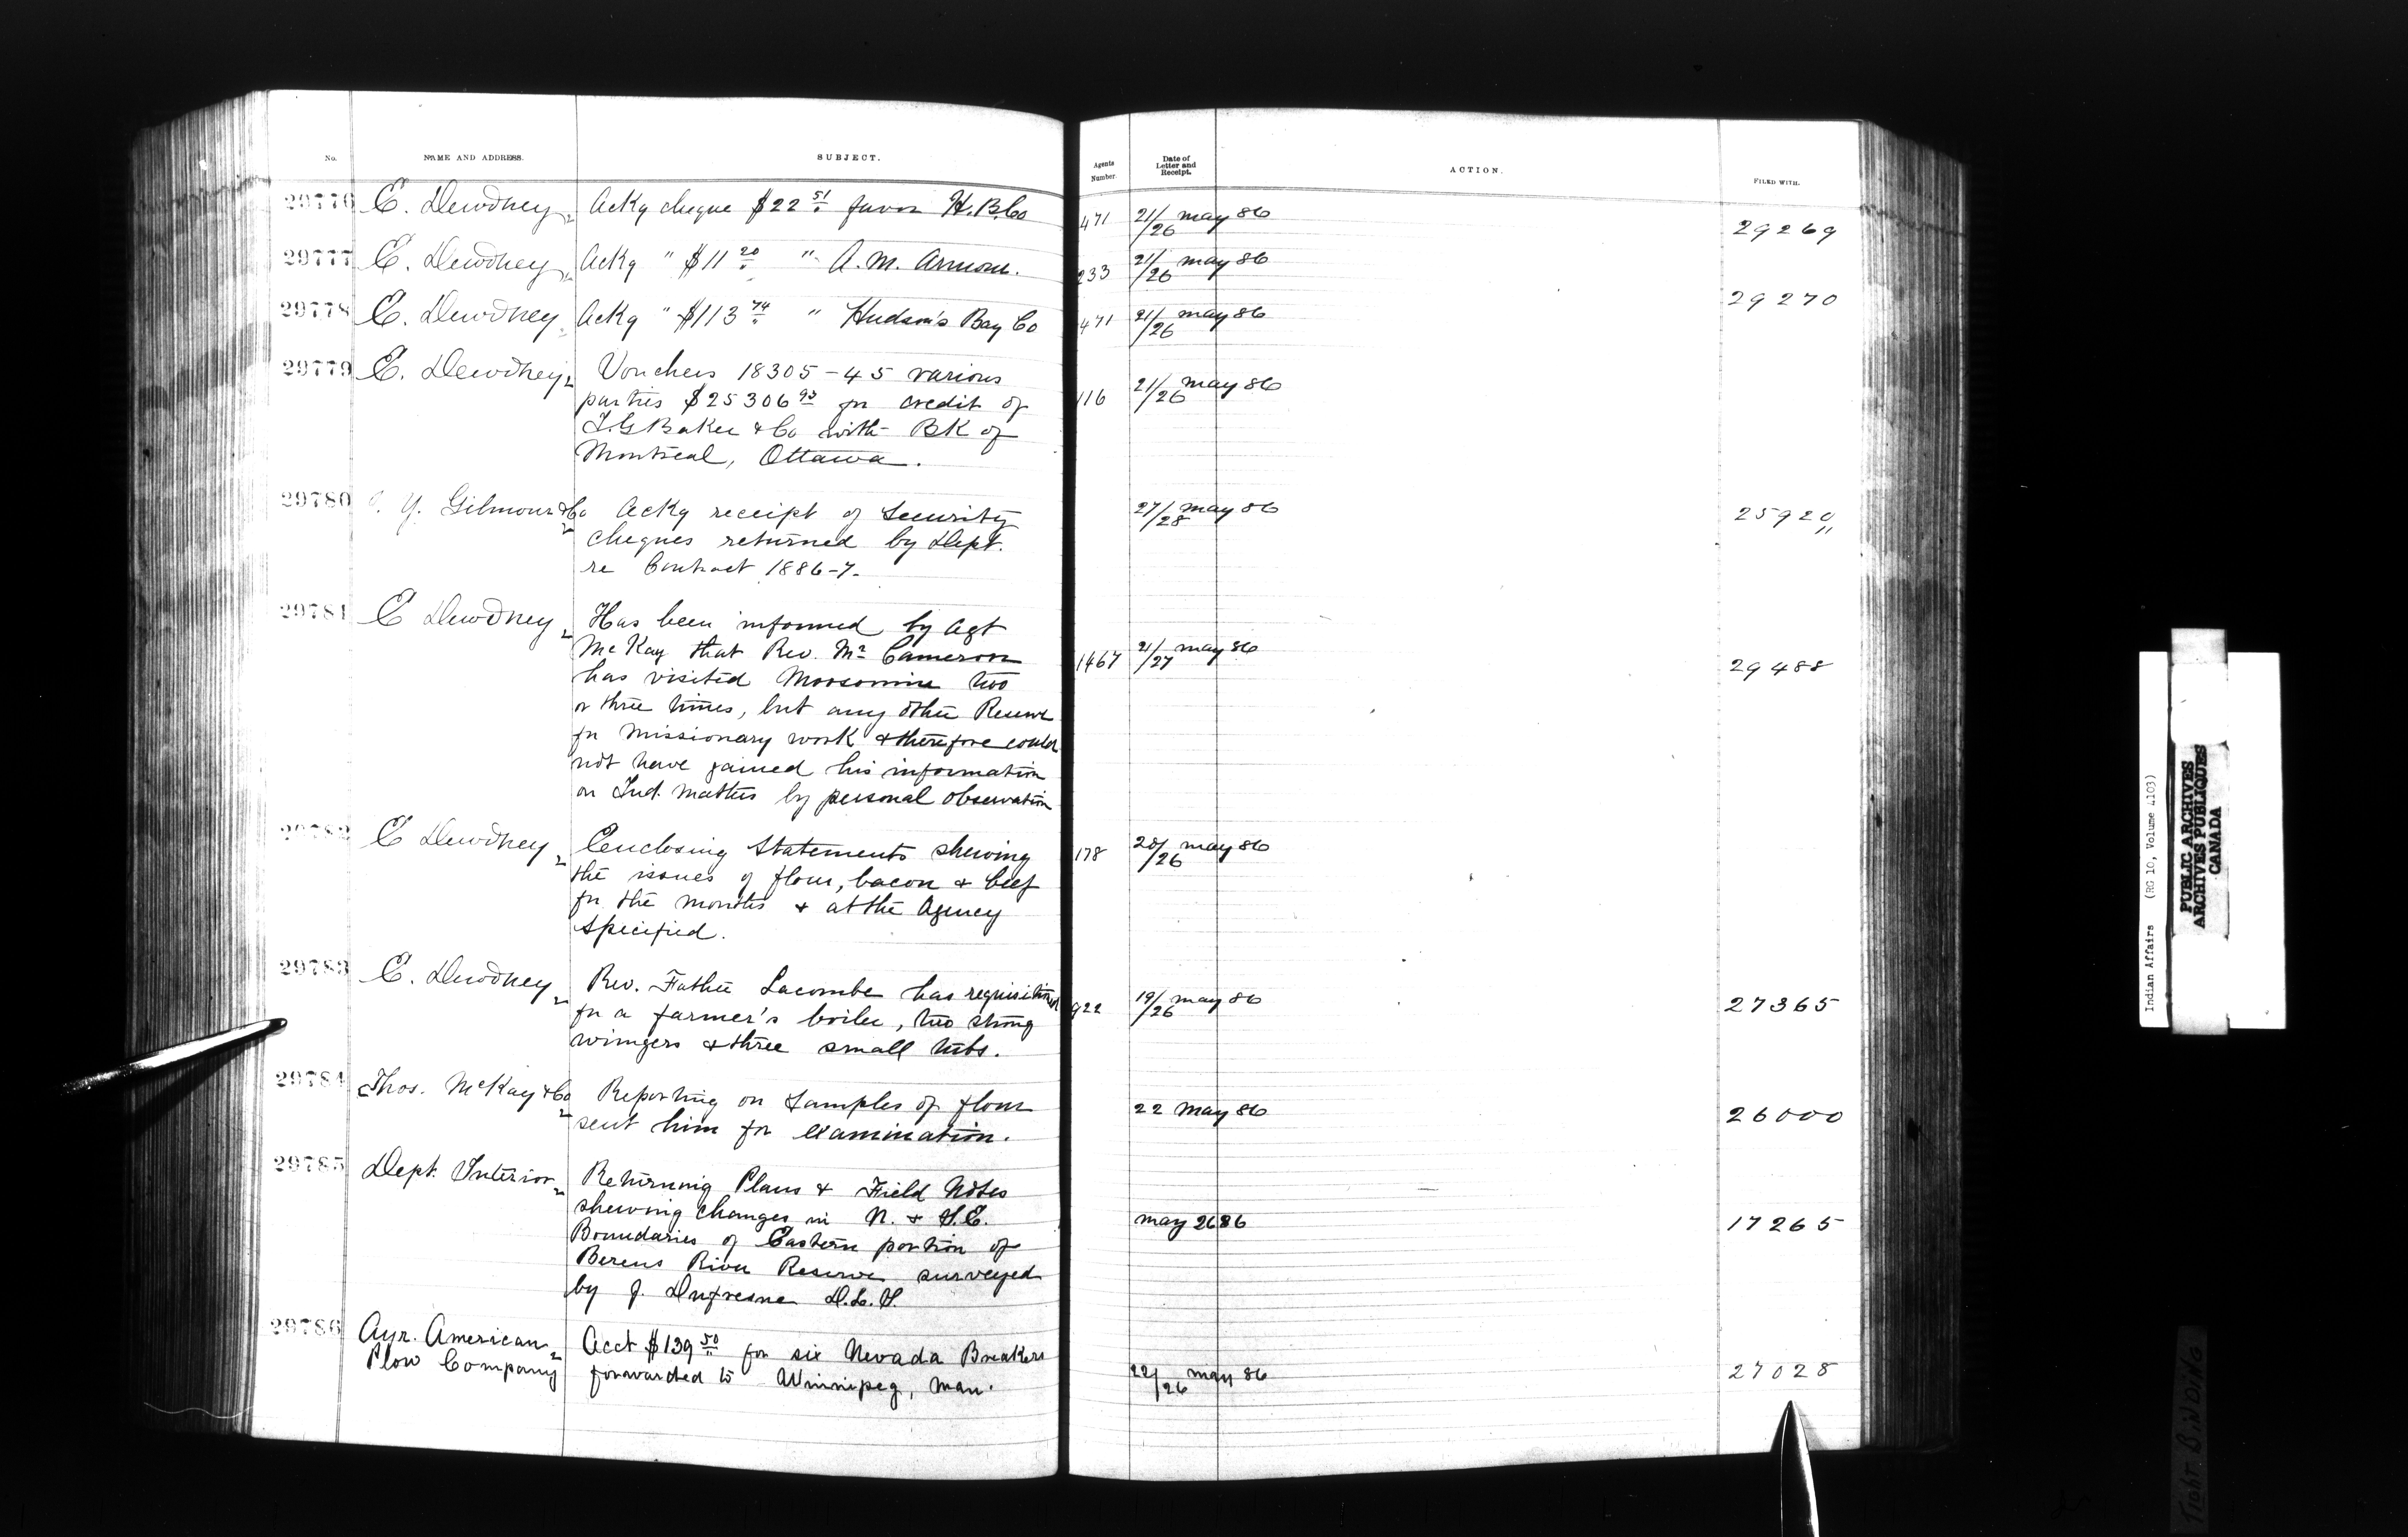 No. NAME AND ADDRESS. SUBJECT. Agents Number. Date of Letter and Receipt. ACTION. FILED WITH.
29776 E. Dewdney Ackg cheque $22 51 favor H.B.Co 471 21/26 May 86 29269
29777 E. Dewdney Ackg " $11 20 " A.M. Armour. 233 21/26 May 86
29270
29778 E. Dewdney Ackg " $113 74 " Hudson's Bay Co 471 21/26 May 86
29779 E. Dewdney Vouchers 18305-45 various
parties $25306 93 for credit of 116 21/26 May 86
I.G Baker & Co with BK of
Montreal, Ottawa.
29780 Y. Gilmour & Co Ackg receipt of Security 27/28 May 86 25920
cheques returned by Dept.
re Contract 1886-7.
29781 E Dewdney Has been informed by Agt
McKay that Rev. Mr Cameron 1467 21/27 May 86 29488
has visited Moosomin two
or three times, but any other Reserve
for missionary work & therefore could
not have gained his information
on Ind. matters by personal observation
29782 E Dewdney Enclosing Statements shewing 178 20/26 May 86
the issues of flour, bacon & beef
for the months & at the Agency
specified.
29783 E. Dewdney Rev. Father Lacombe has requisitioned 922 19/26 May 86 27365
for a farmer's boiler, two strong
wringers & three small tubs.
29784 Thos. McKay & Co Reporting on Samples of flour 22 May 86 26000
sent him for examination.
29785 Dept. Interior Returning Plans & Field Notes
shewing changes in N. & S.E. May 26 86 17265
Boundaries of Eastern portion of
Berens River Reserve surveyed
by J. Dufresne D.L.S.
29786 Ayr. American Acct $139 50 for six Nevada Breakers
Plow Company forwarded to Winnipeg, Man. 22/26 May 86 27028
Indian Affairs (RG 10, Volume 4103)
PUBLIC ARCHIVES
ARCHIVES PUBLIQUES
CANADA
TIGHT BINDING